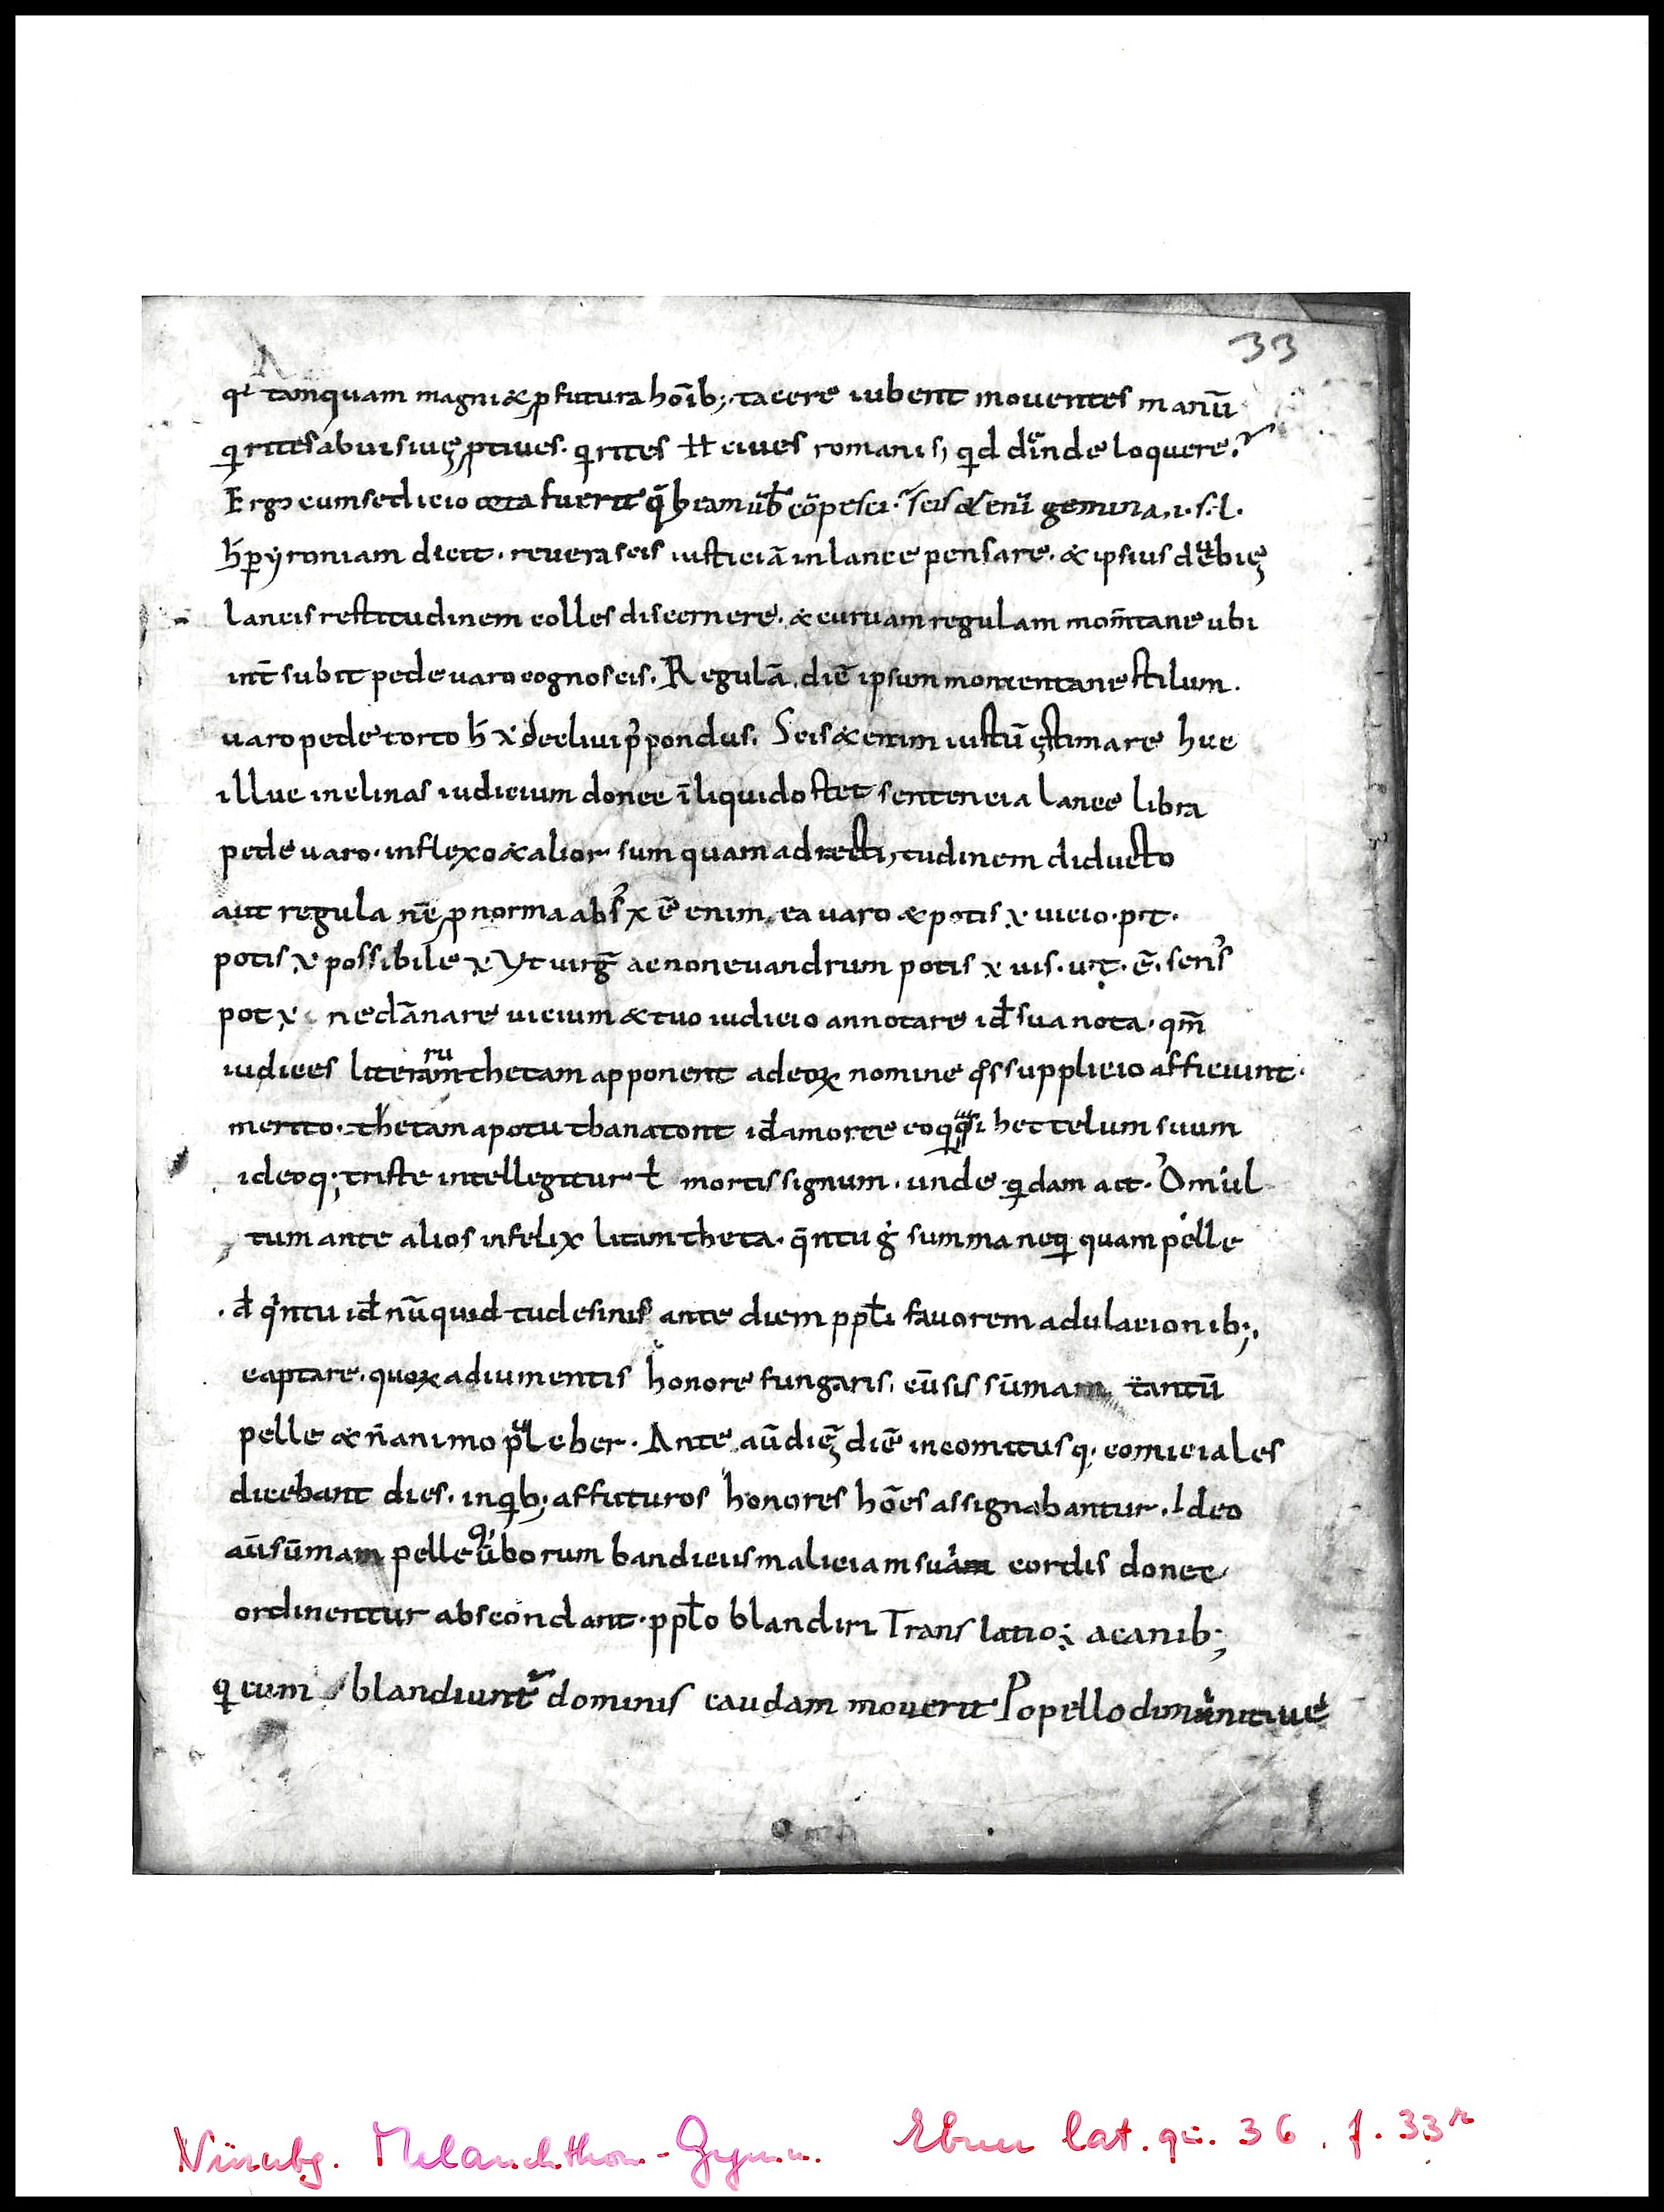 33
qi tanquam magni & ꝓfutura hōib; tacere iubent mouentes manū
qirites abuisiuę ꝓptiues. qirites ƚƚ ciues romani s; qid deinde loquere?
Ergo cum sedicio orta fuerit
h̄ per yroniam dicit. reuera scis iusticiā in lance pensare. & ipsius dębię
lancis restitudinem colles discernere. & curuam regulam mom̄tane ubi
int̄ subit pede uaro cognoscis. Regulā. diē ipsum momentane stilum.
uaro pede torto h̄ x decliui p̄pondus. Scis & enim iustū ęstimare huc
illuc inclinas iudicium donec ī liquido stet sentencia lance libra
pede uaro. inflexo & alior sum quam ad recti, tudinem diducto
aut regula nē ꝓ norma abs x ē enim. ea uaro & potis x uicio. pit.
potis x possibile x Vt uirḡ ac non euandrum potis x uis. u.t. ē. sens
pot x nec dānare uicium & tuo iudicio annotare id̄ sua nota. qm̄
iudices literam ru thetam apponent ad eoꝝ nomine qs supplicio afficiunt.
merito. thetam apotu tbanatont id̄ a morte eoq qasi het telum suum
ideoq; triste intellegitur ƚ mortis signum. unde qidam ait. O mul
tum ante alios infelix litam theta. qīntu g summa neqi quam pelle
d̄ qintu id̄ nūquid tu desinis ante diem ppƚi fauorem adulacionib;,
captare. quoꝝ adiumentis honore fungaris. cū sis sūmam tantū
pelle & n̄ animo pul cber. Ante aū dię diē in comitusq. comiciales
dicebant dies. in qib; affuturos honores hōes assignabantur. Ideo
aū sūmam pelle qi ūborum bandicus maliciam suam cordis donec
ordinentur abscondant. ppƚo blandiri Translatio x; a canib;
qi cum blandiunt dominis caudam mouerit Popello diminitiue
Nürnbg. Melanchthon-Gymn. Ebner lat. qu. 36, f. 33r